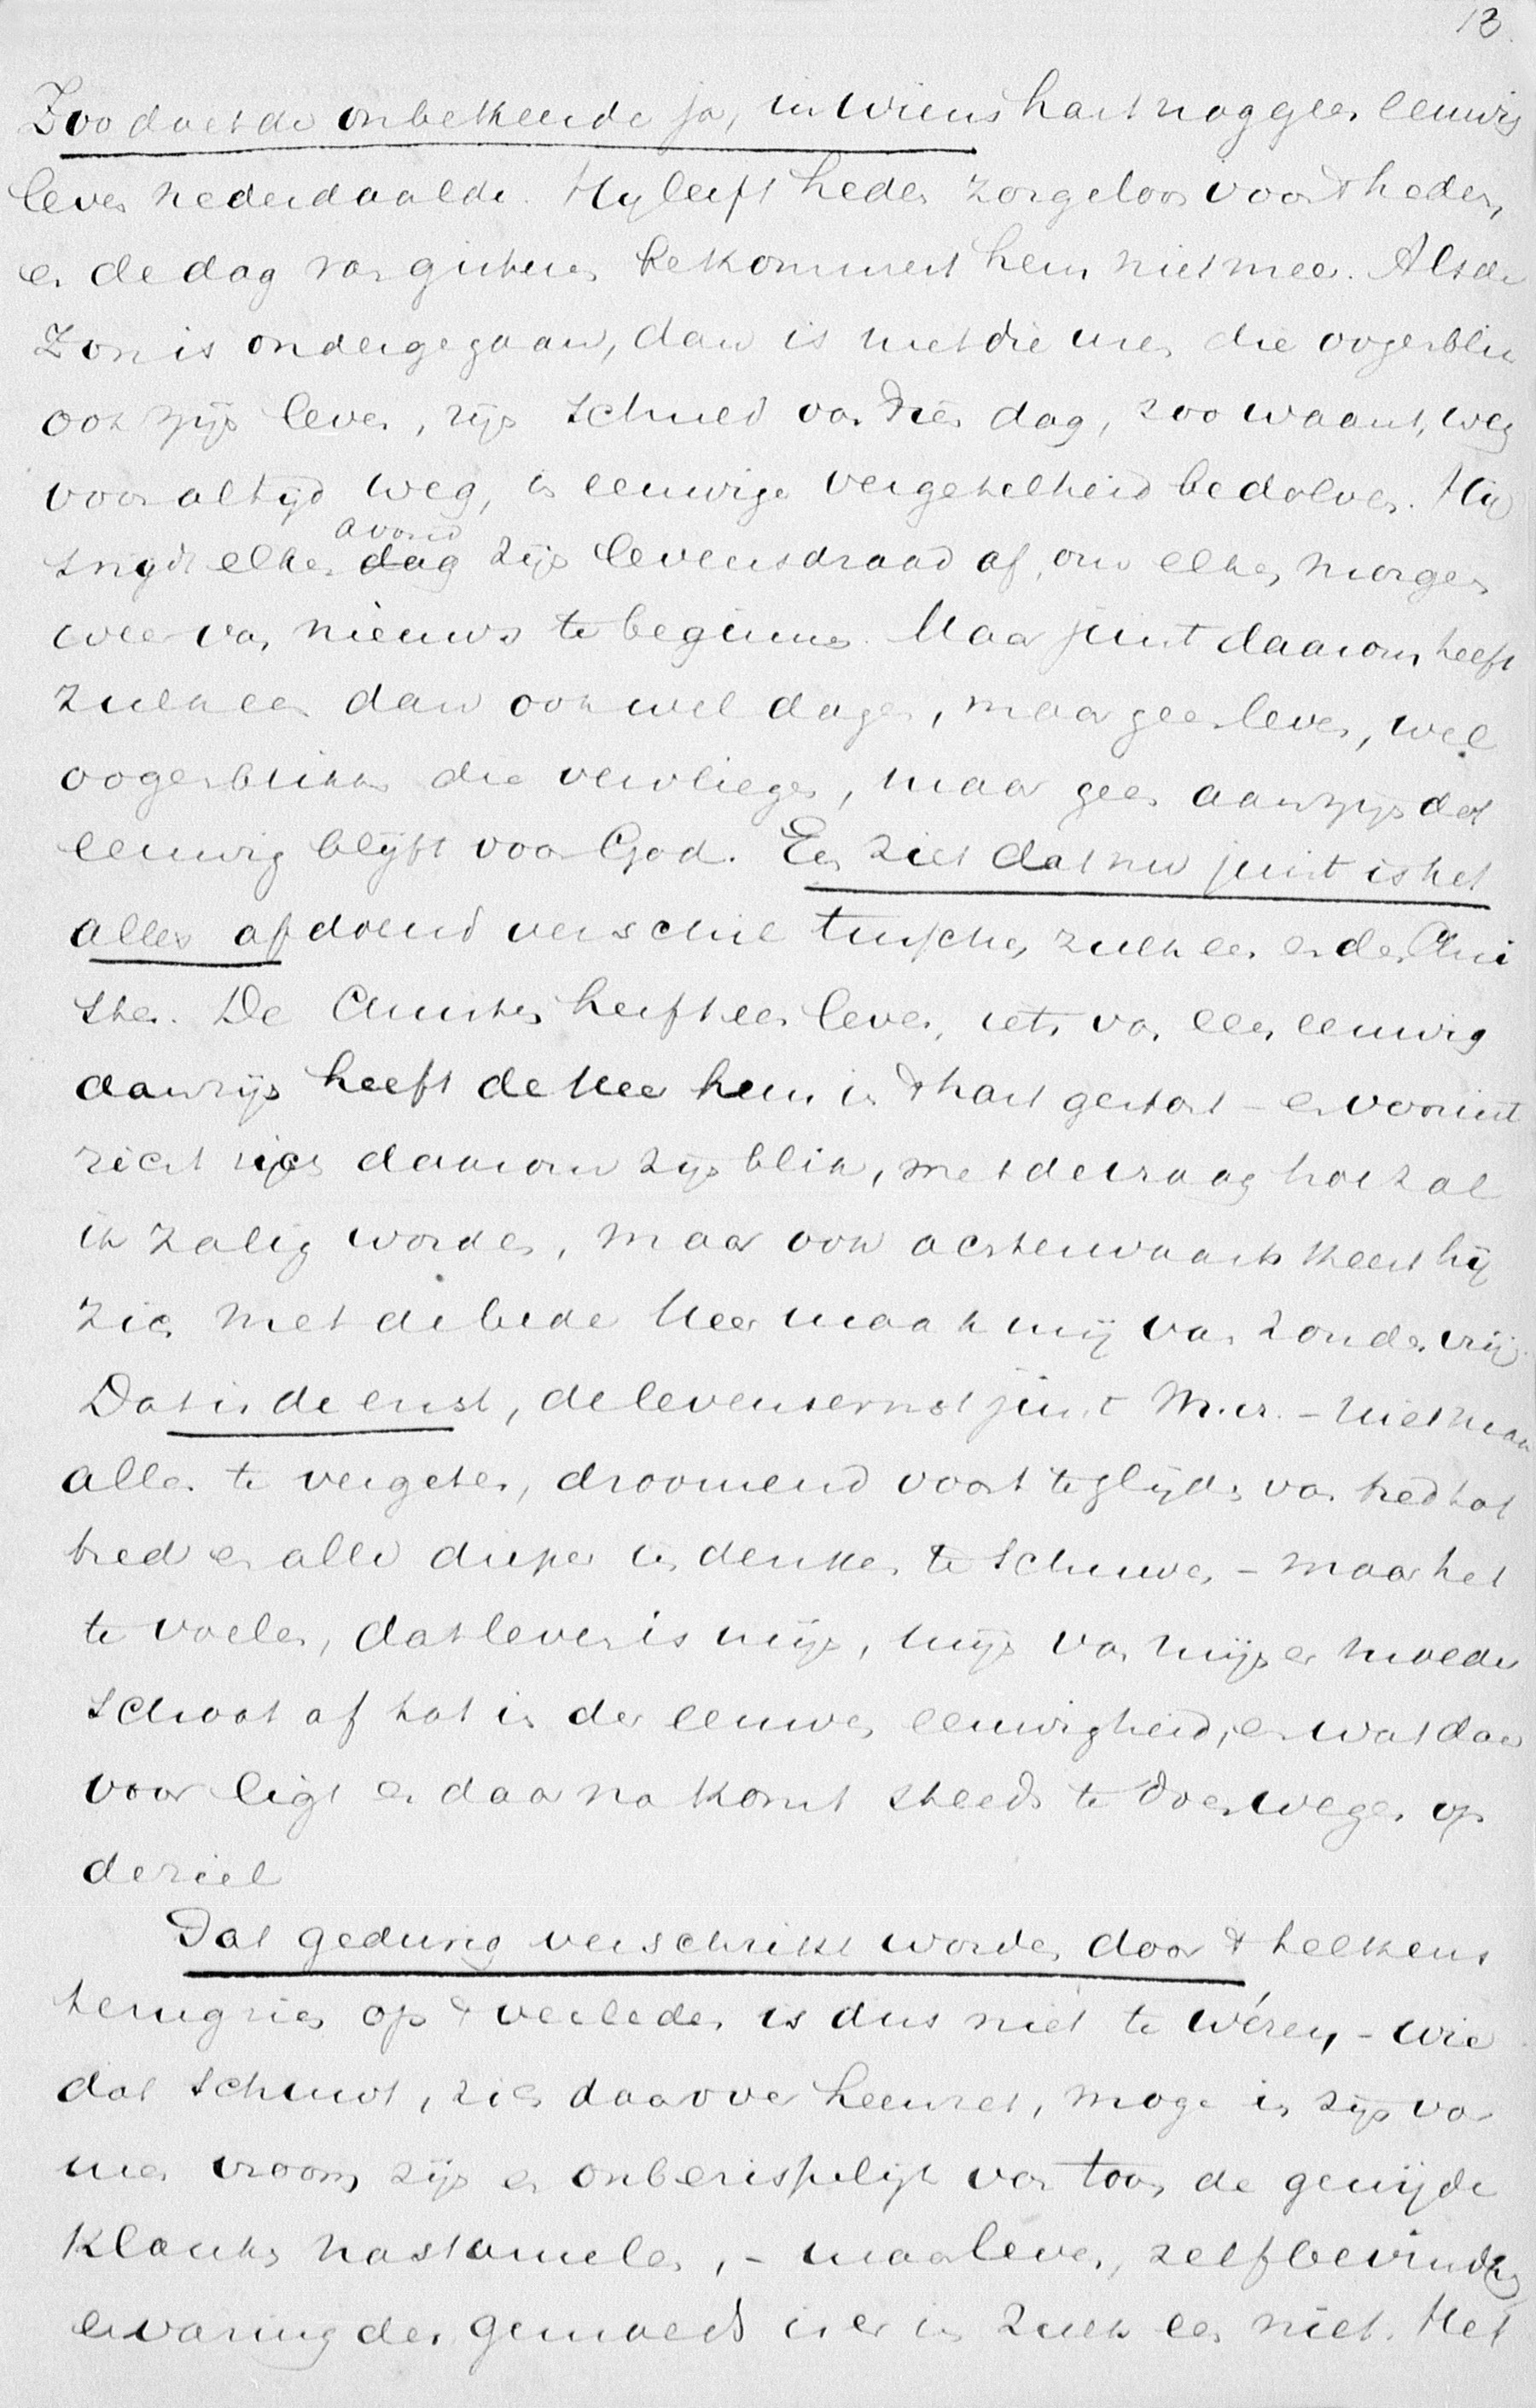 13.
Zoo doet de onbekeerde ja, in wiens hart nog geen eeuwig
leven nederdaalde. Hy leeft heden zorgeloos voor 't heden,
en de dag van gisteren bekommert hem niet meer. Als de
Zon is ondergegaan, dan is met die uren die oogenblik
ook zijn leven, zijn schuld van dien dag, zoo waant, weg
voor altijd weg, in eeuwige vergetelheid bedolven. Hij
snijdt elken dag avond zijn levensdraad af, om elken morgen
weer van nieuws te beginnen. Maar juist daarom heeft
zulk een dan ook wel dagen, maar geen leven, wel
oogenblikken die vervliegen, maar geen aanzijn dat
eeuwig blijft voor God. En ziet dat nu juist is het
alles afdoend verschil tusschen zulk een en den Chri
sten. De Christen heeft een leven, iets van een eeuwig
aanzijn heeft de Heer hem in 't hart gestort – en vooruit
richt zich daarom zijn blik, met de vraag hoe zal
ik zalig worden, maar ook achterwaarts keert hij
zich met de bede Heer maak mij van zonden vrij.
Dat is de ernst, de levensernst juist M.Br. – niet maar
alles te vergeten, droomend voort te glijden van tred tot
tred en alle dieper in denken te schuwen – maar het
te voelen, dat leven is mijn, mijn van mijn moeder
schoot af tot in der eeuwen eeuwigheid, en wat daar
voor ligt en daarna komt steeds te doen wegen op
de ziel
Dat gedurig verschrikt worden door 't telkens
terugzien op 't verleden is dus niet te wéren, – wie
dat schuwt, zich daarover heenzet, moge in zijn vor
men vroom zijn en onberispelijk van toon de gewijde
klanken nastamelen, – maar leven, zelfbevinding
ervaring des gemoeds is er in zulk een niet. Het